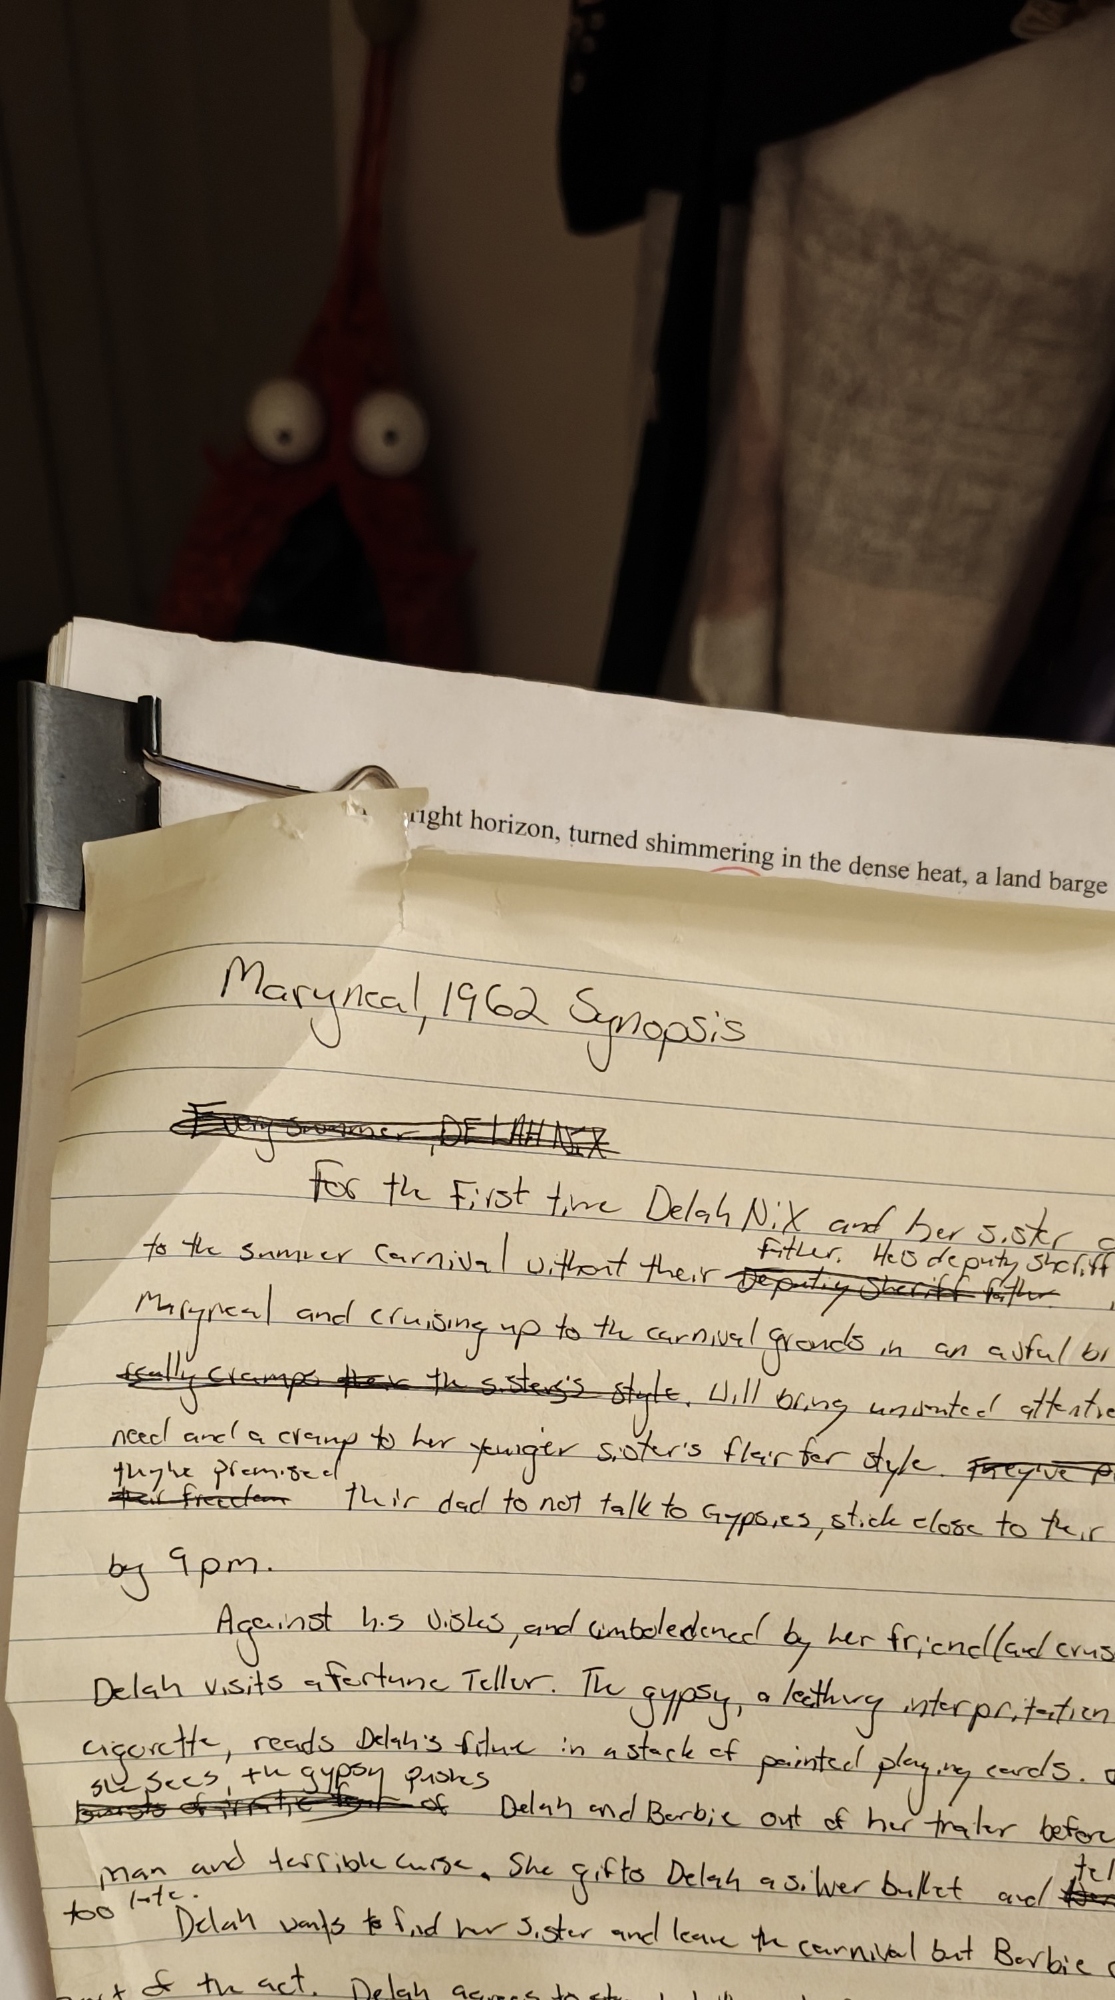 right horizon, turned shimmering in the dense heat, a land barge
Maryneal, 1962 Synopsis
Every summer, DELAH NIX
For the First time Delah Nix and her sister
father. He's deputy sheriff
to the summer carnival without their Deputy Sheriff father
Maryneal and cruising up to the carnival gronds in an awful
really cramps their the sisters's style. Will bring unwanted
need and a cramp to her younger sister's flair for style.
they've promised
their freedom their dad to not talk to Gypsies, stick close to their
by 9pm.
Against his wishes, and emboledened by her friend (and
Delah visits a fortune Teller. The gypsy, a leathery interpritation
cigarette, reads Delah's fitue in a stack of painted playing cards.
she sees, the gypsy pushes
of Delah and Barbie out of her trailer before
man and terrible curse. She gifts Delah a silver bullet and
too late.
Delah wants to find her sister and leave the carnival but Barbie
of the act. Delah agrees to